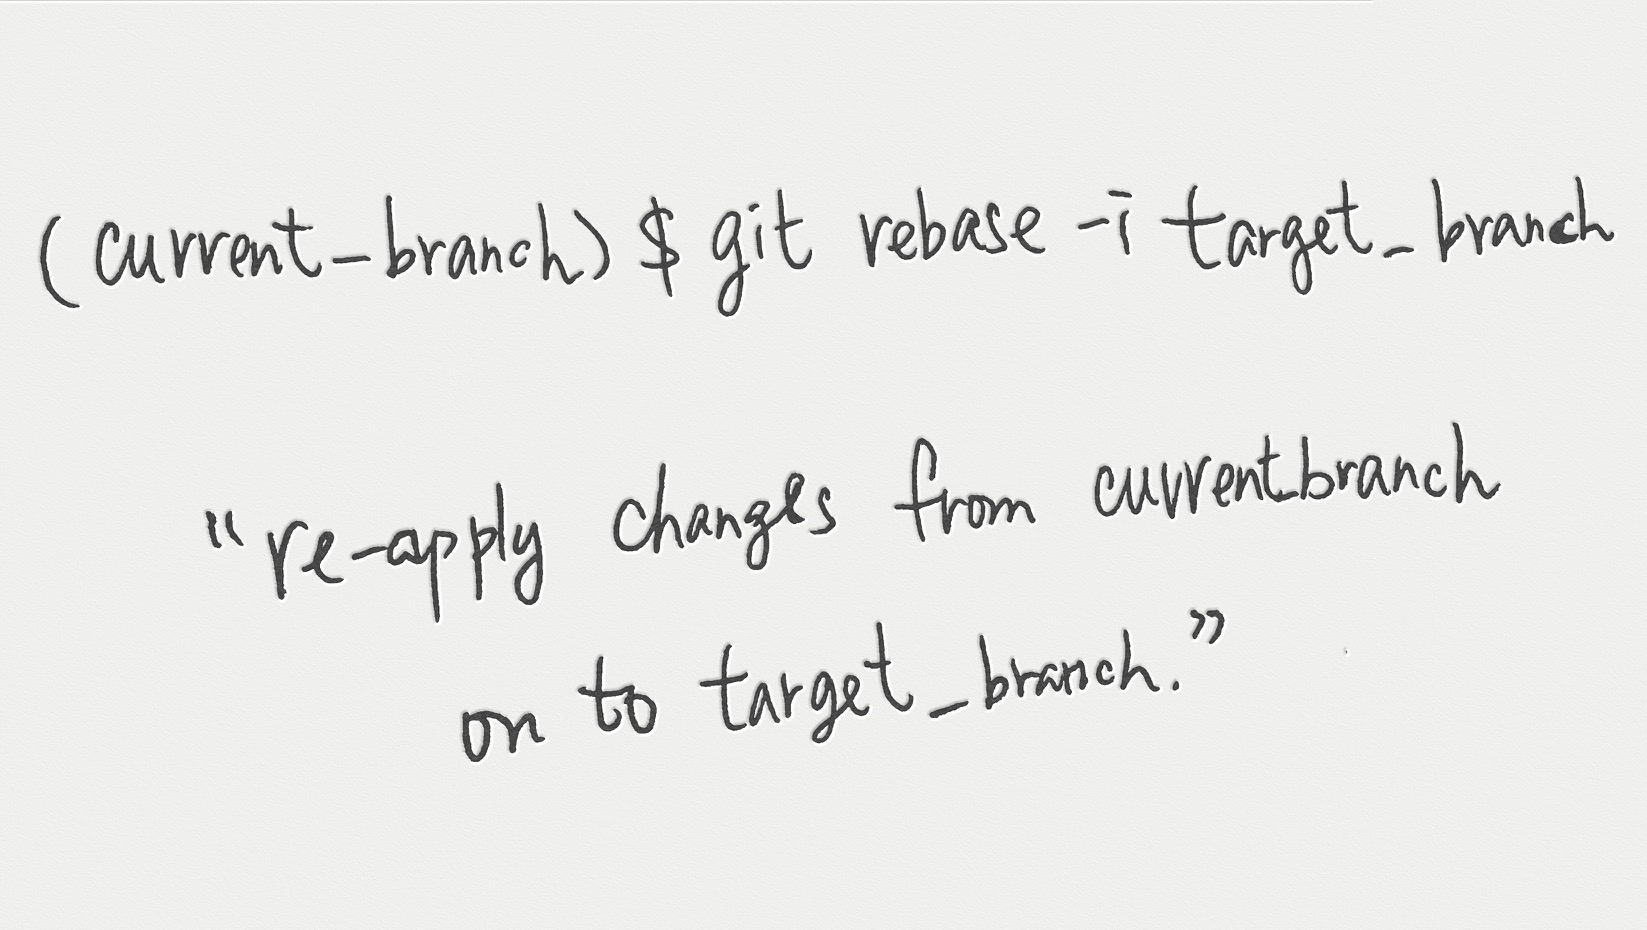 (current-branch) $ git rebase -i target_branch
"re-apply changes from current_branch
on to target_branch."